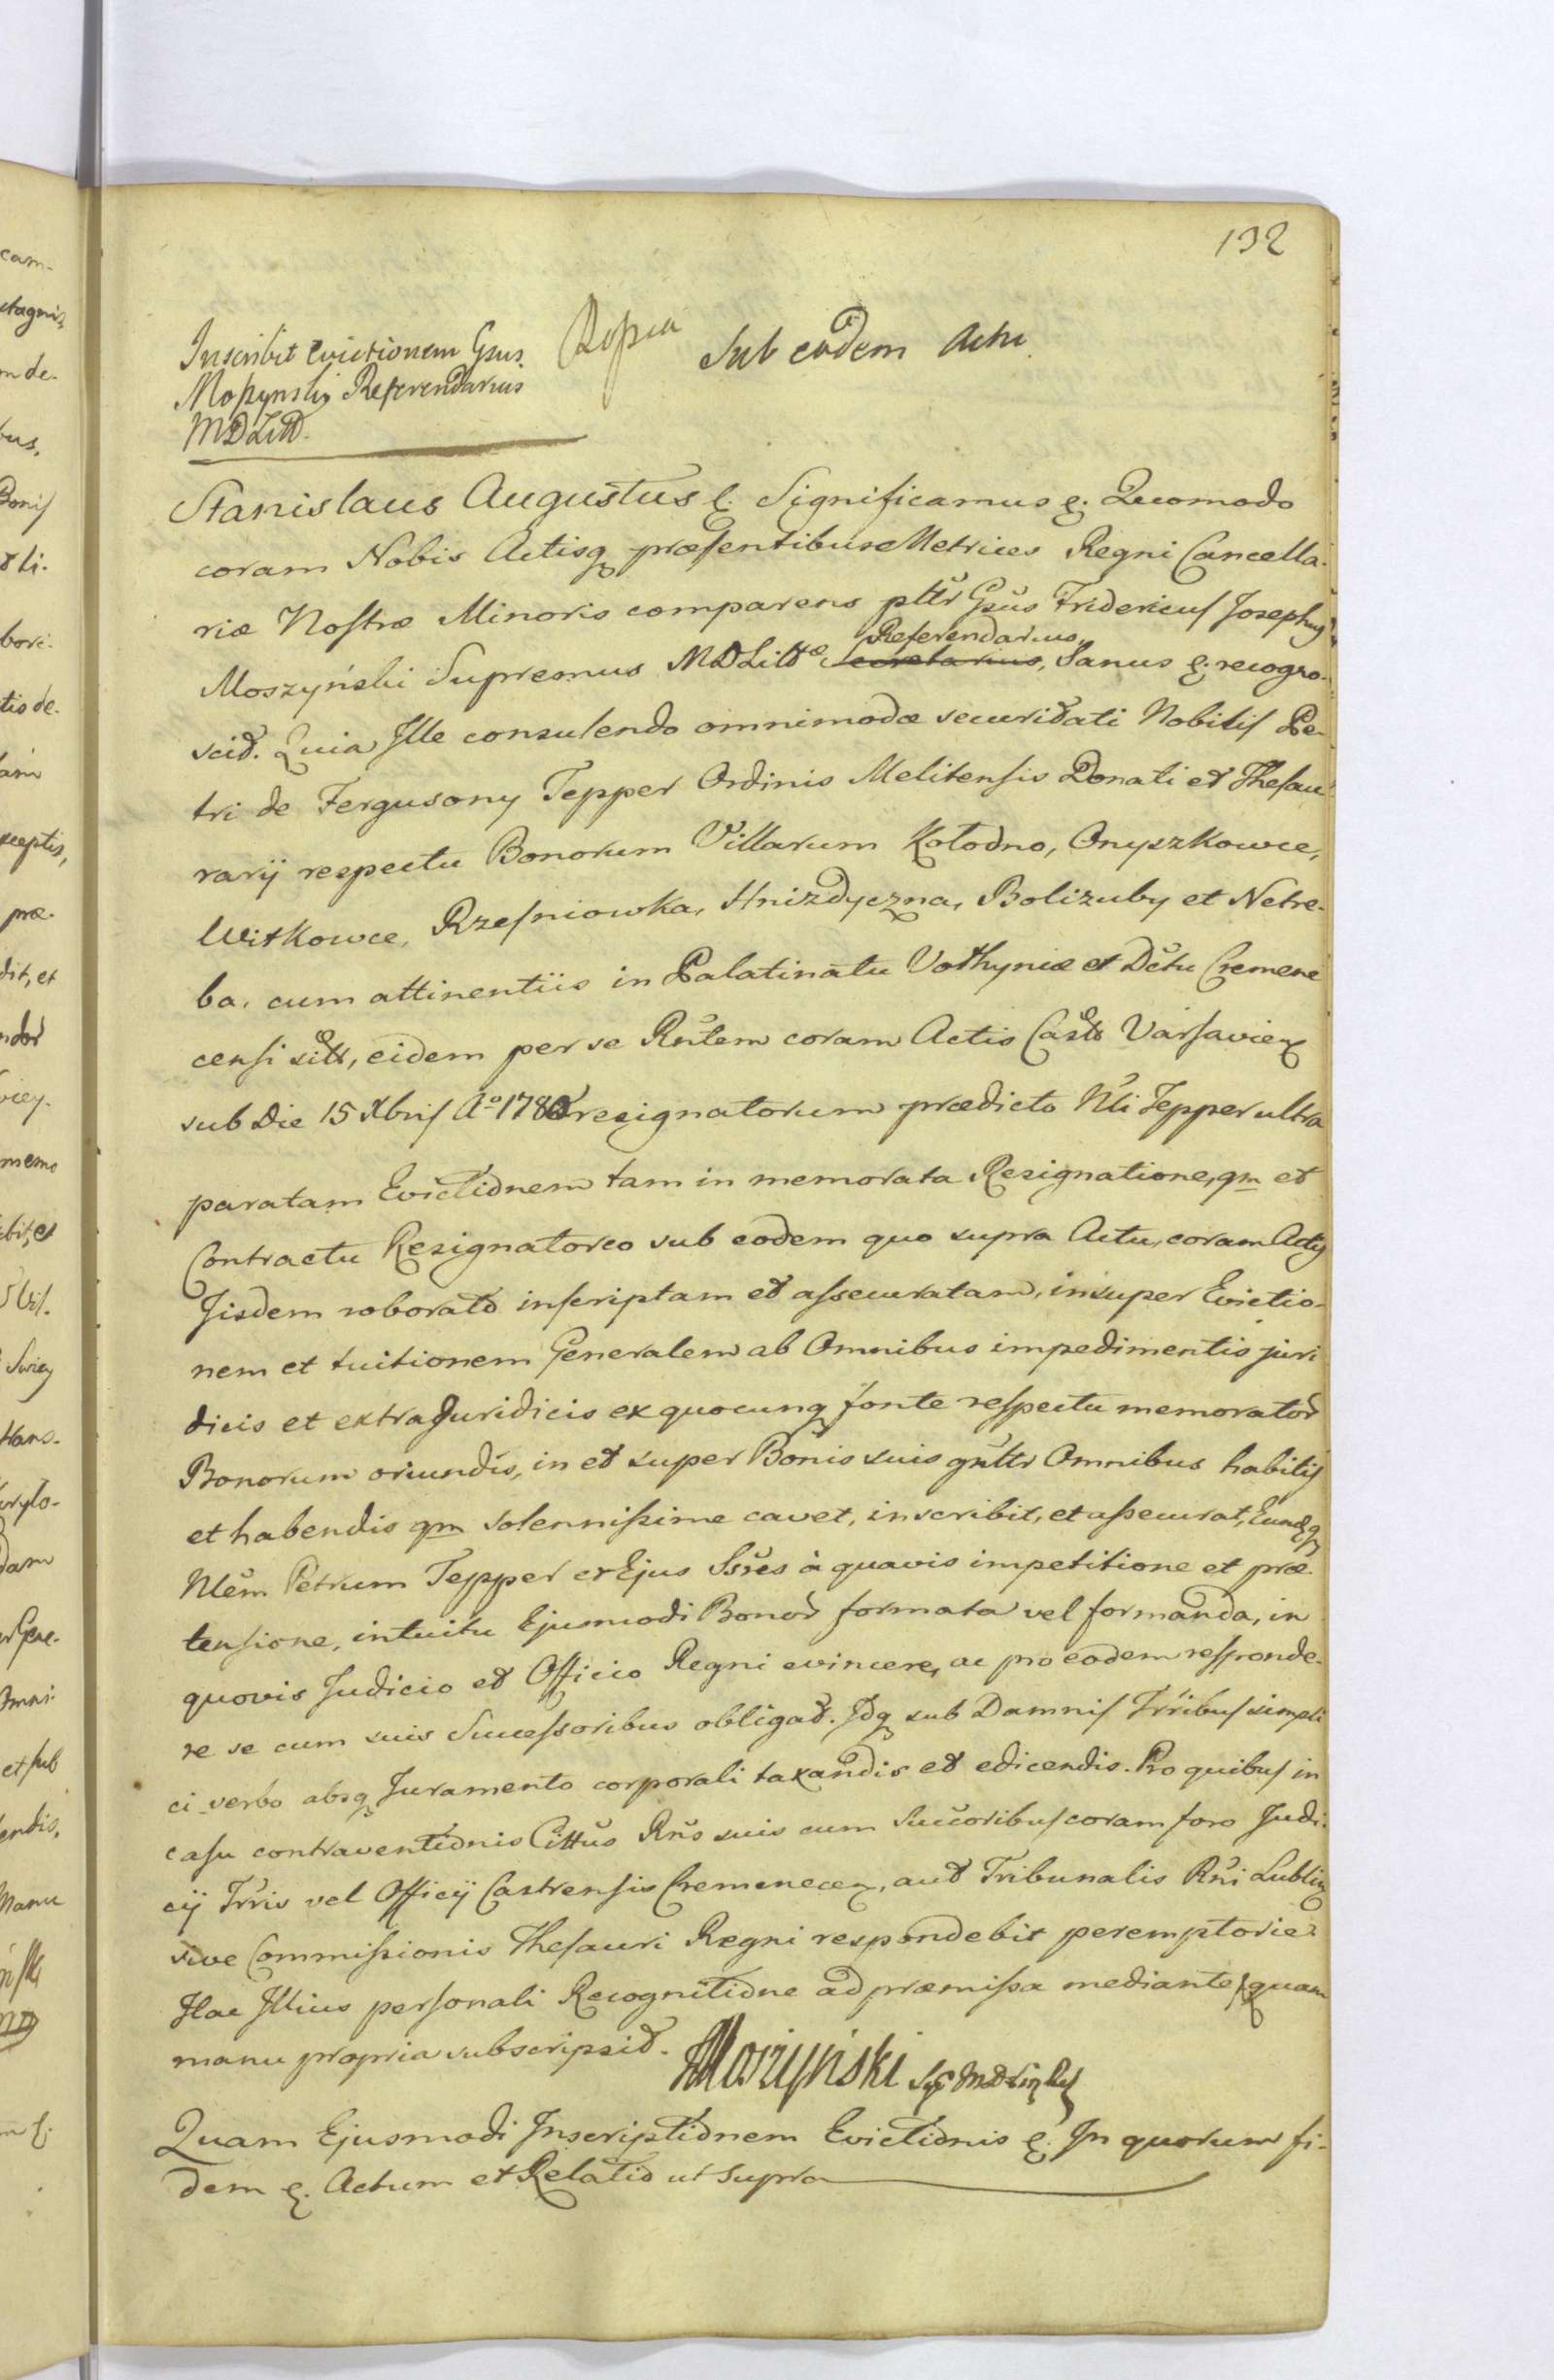 132
Inscribit Evictionem Gsus.
Moszynski Referendarius
MDLitt.
Kopia
Sub eodem Actu.
Stanislaus Augustus &. Significamus &. Quomodo
coram Nobis Actisq præsentibus Metrices Regni Cancella-
riæ Nostræ Minoris comparens pltr Gsus Fridericus Josephus
Referendarius,
Moszyński Supremus MDLittæ Secretarius, Sanus &. recogno-
scit. Quia Ille consulendo omnimodæ securitati Nobilis Pe-
tri de Fergusony Tepper Ordinis Melitensis Donati et Thesau-
rarij respectu Bonorum Villarum Kołodno, Onyszkowce,
Witkowce, Rzesniowka, Hnizdyczna, Bolizuby et Netre-
ba, cum attinentiis in Palatinatu Vołhyniæ et Dctu Cremene
censi sitt, eidem per se Rntem coram Actis Castr Varsavien
sub Die 15 Xbris Ao 1780 resignatorum prædicto Nli Tepper ultra
paratam Evictionem tam in memorata Resignatione, qm et
Contractu Resignatoreo sub eodem quo supra Actu, coram Actis
Iisdem roborato inscriptam et assecuratam, insuper Evictio-
nem et tuitionem Generalem ab Omnibus impedimentis juri
dicis et extrajuridicis ex quocunq fonte respectu memorator
Bonorum oriundis, in et super Bonis suis gnltr Omnibus habitis
et habendis qm solennissime cavet, inscribit, et assecurat, Eundq
Nlem Petrum Tepper et Ejus Ssres à quavis impetitione et præ-
tensione, intuitu Ejusmodi Bonor formata vel formanda, in
quovis Judicio et Officio Regni evincere, ac pro eodem responde-
re se cum suis Successoribus obligat. Idq sub Damnis Trribus simpli
ci verbo absq Juramento corporali taxandis et edicendis. Pro quibus in
casu contraventionis Cittus Rns suis cum Succoribus coram foro Judi-
cij Trris vel Officij Castrensis Cremenecen, aut Tribunalis Rni Lublin
sive Commissionis Thesauri Regni respondebit peremptorie.
Hac Illius personali Recognitione ad præmissa mediante, quam
manu propria subscripsit.
FMoszyński
Quam Ejusmodi Inscriptionem Evictionis &. In quorum fi-
dem &. Actum et Relatio ut Supra